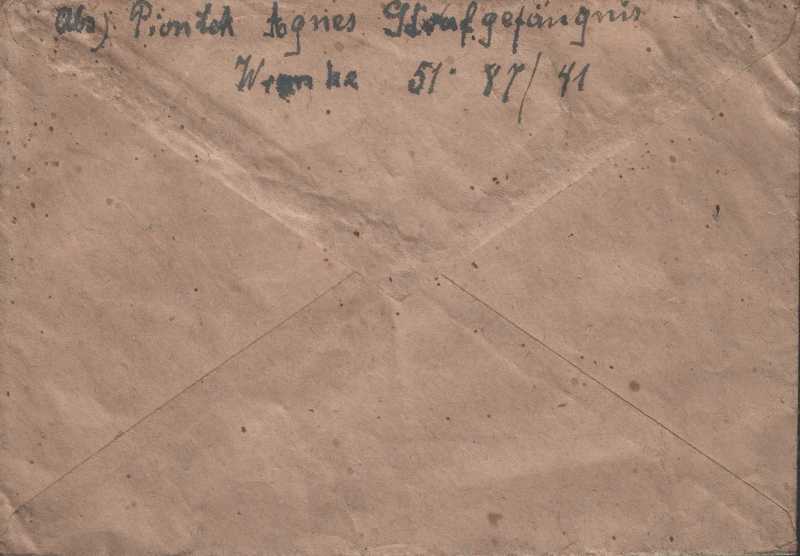 Abs) Piontek Agnes Strafgefängnis
Wronke 51· 87/41